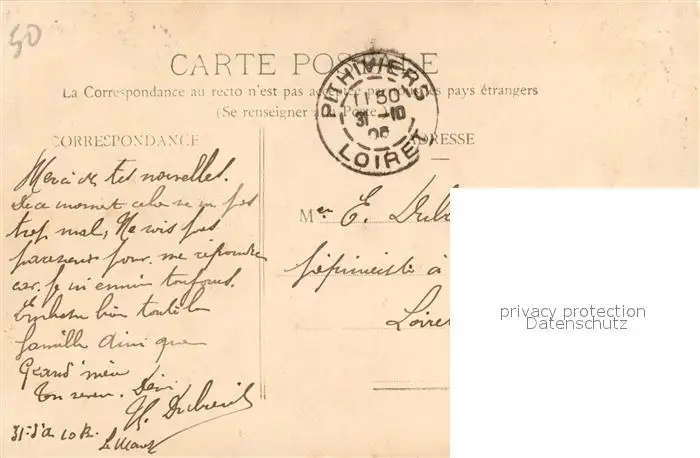 50
CARTE POSTALE
La Correspondance au recto n'est pas acceptée par tous les pays étrangers
(Se renseigner à la Poste)
PITHIVIERS
11 50
31 -10
06
LOIRET
CORRESPONDANCE
ADRESSE
Merci de tes nouvelles.
De ce moment cela ne va pas
trop mal, Ne sois pas
paresseux pour me répondre
car je m'ennuie toujours.
Embrasse bien toute la
famille ainsi que
Grand'mère
Ton
H. Dubreuil
E. Dub
pépiniériste à
Loiret
privacy protection
Datenschutz